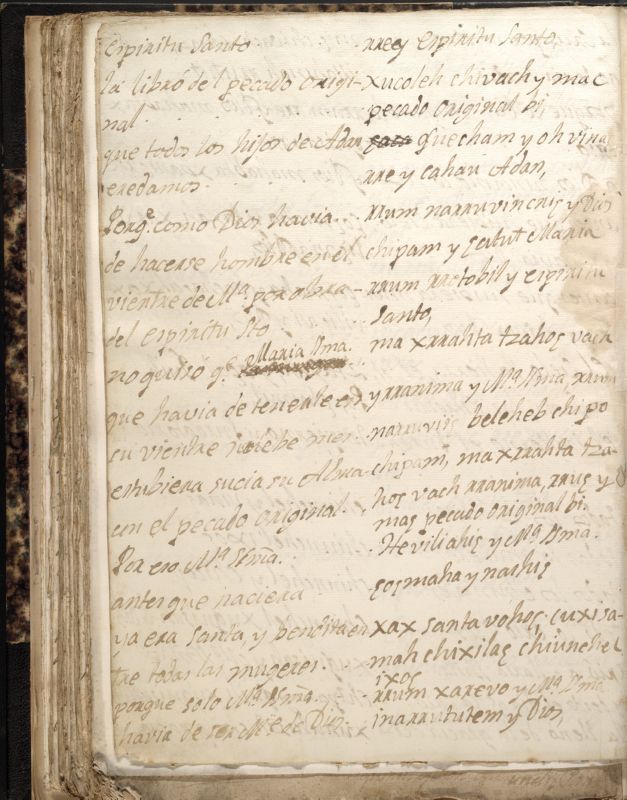 espiritu Santo
la libró del pecado origi-
nal.
que todos los hijos de Adan
eredamos.
Porq.e como Dios havia
de hacerse hombre en el
vientre de M.a por obra-
del espiritu S.to
no quisó q.e Maria SSma.
que havia de tenerle en
su vientre nuebe mes.
estubiera sucia su Alma
con el pecado original.
Por eso M.a SSma.
antes que naciera
ya era santa, y bendita en
tre todas las mugeres.
porque solo M.a SSma.
havia de ser M.e de Dios.
rreey espiritu Santo,
xucoleh chivach y mac
pecado original bi
quecham y oh vina
rre y cahau Adan,
rrum narruvincris y Dios
chipam y Maria
rrum rretobil y espiritu
Santo,
ma xrrahta tzahos vach
y rranima y M.a SSma, rrum
narruviis beleheb chi po
chipam, ma xrrahta tza-
hos vach rranima, rrus y
mas pecado original bi.
Heviliahis y M.a SSma.
sosmaha y nachis
xax santa vohos, cuxisa-
mah chixilas chivnchel
ixos
rrum xarevo y M.a SSma
inarrututem y Dios,